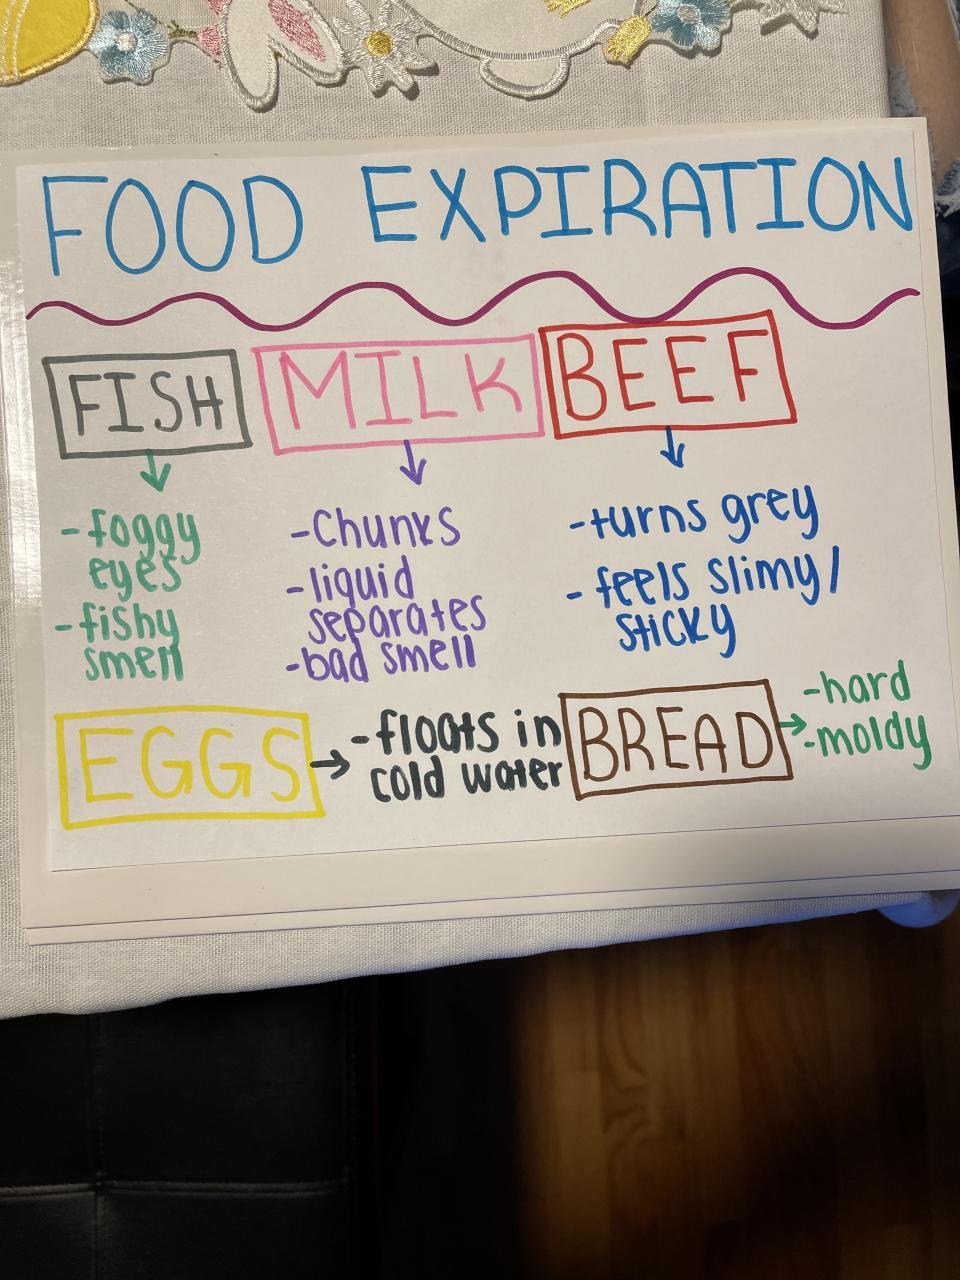 FOOD EXPIRATION
FISH
- foggy
eyes
- fishy
smell
MILK
- Chunks
- liquid
separates
- bad smell
BEEF
- turns grey
- feels slimy/
sticky
EGGS
- floats in
cold water
BREAD
- hard
- moldy